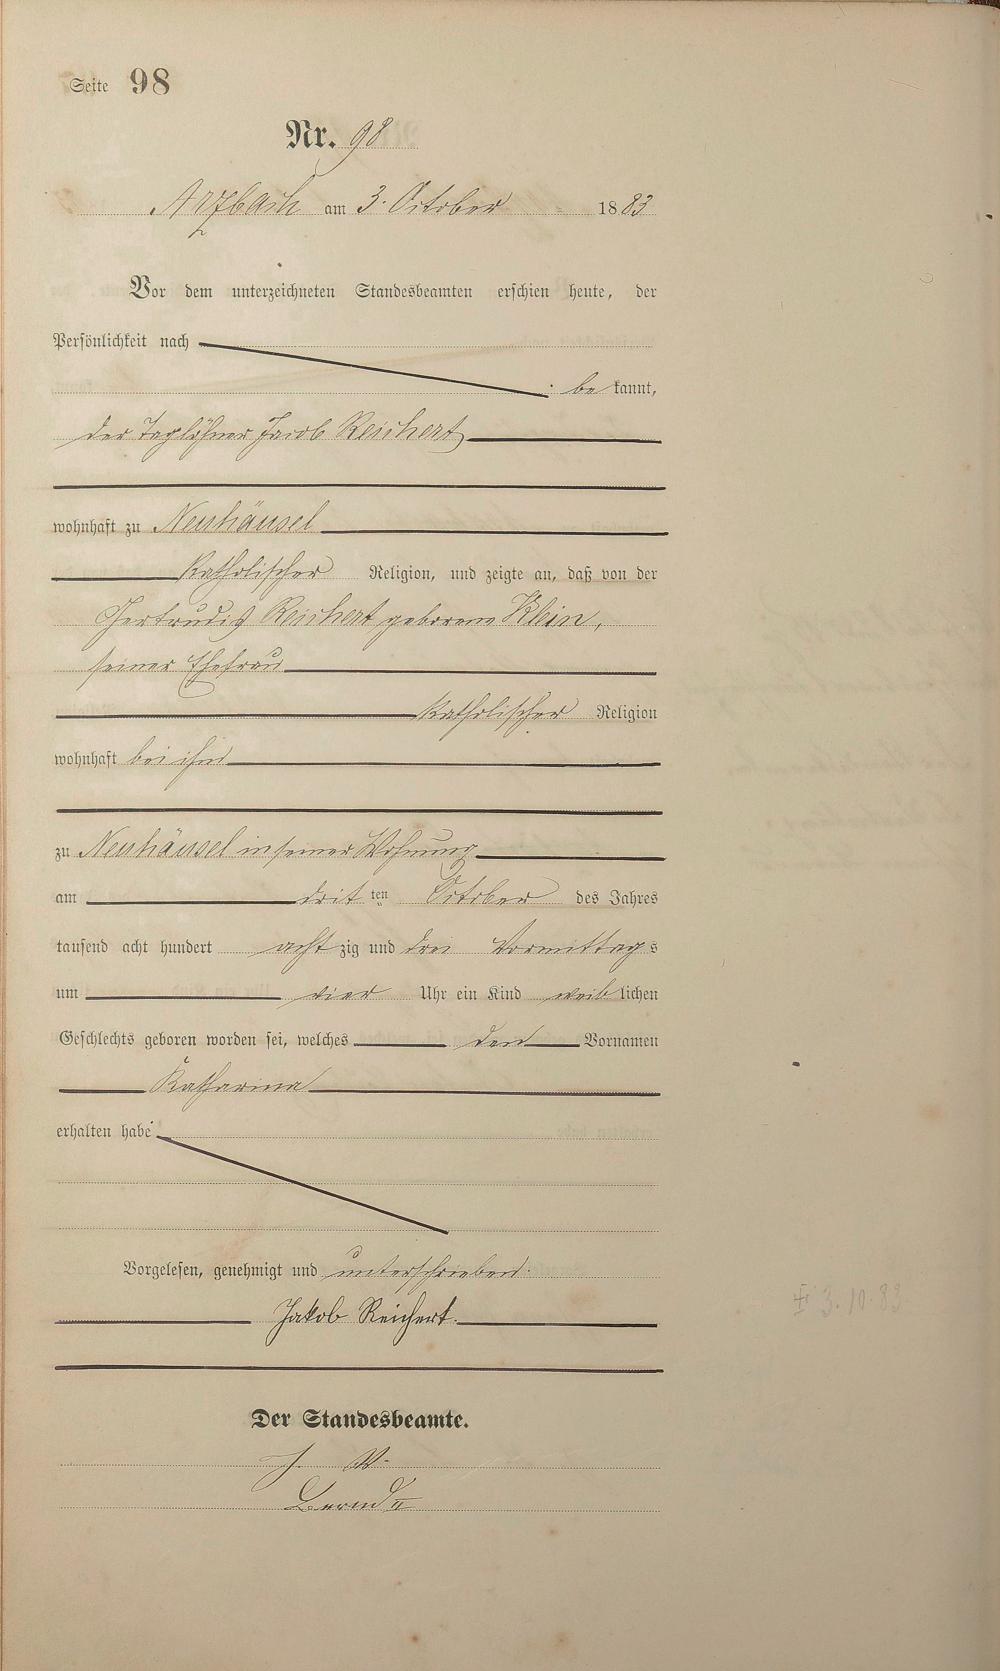 Seite 98
Nr. 98
Arzbach am 3. October 1883
Vor dem unterzeichneten Standesbeamten erschien heute, der
Persönlichkeit nach
be kannt,
der Taglöhner Jacob Reichert
wohnhaft zu Neuhäusel
Katholischer Religion, und zeigte an, daß von der
Gertrudis Reichert geborene Klein,
seiner Ehefrau
katholischer Religion
wohnhaft bei ihm
zu Neuhäusel in seiner Wohnung
am dritten October des Jahres
tausend acht hundert achtzig und drei Vormittags
um vier Uhr ein Kind weiblichen
Geschlechts geboren worden sei, welches den Vornamen
Katharina
erhalten habe
Vorgelesen, genehmigt und unterschrieben.
Jakob Reichert.
Der Standesbeamte.
J. V.
3.10.83